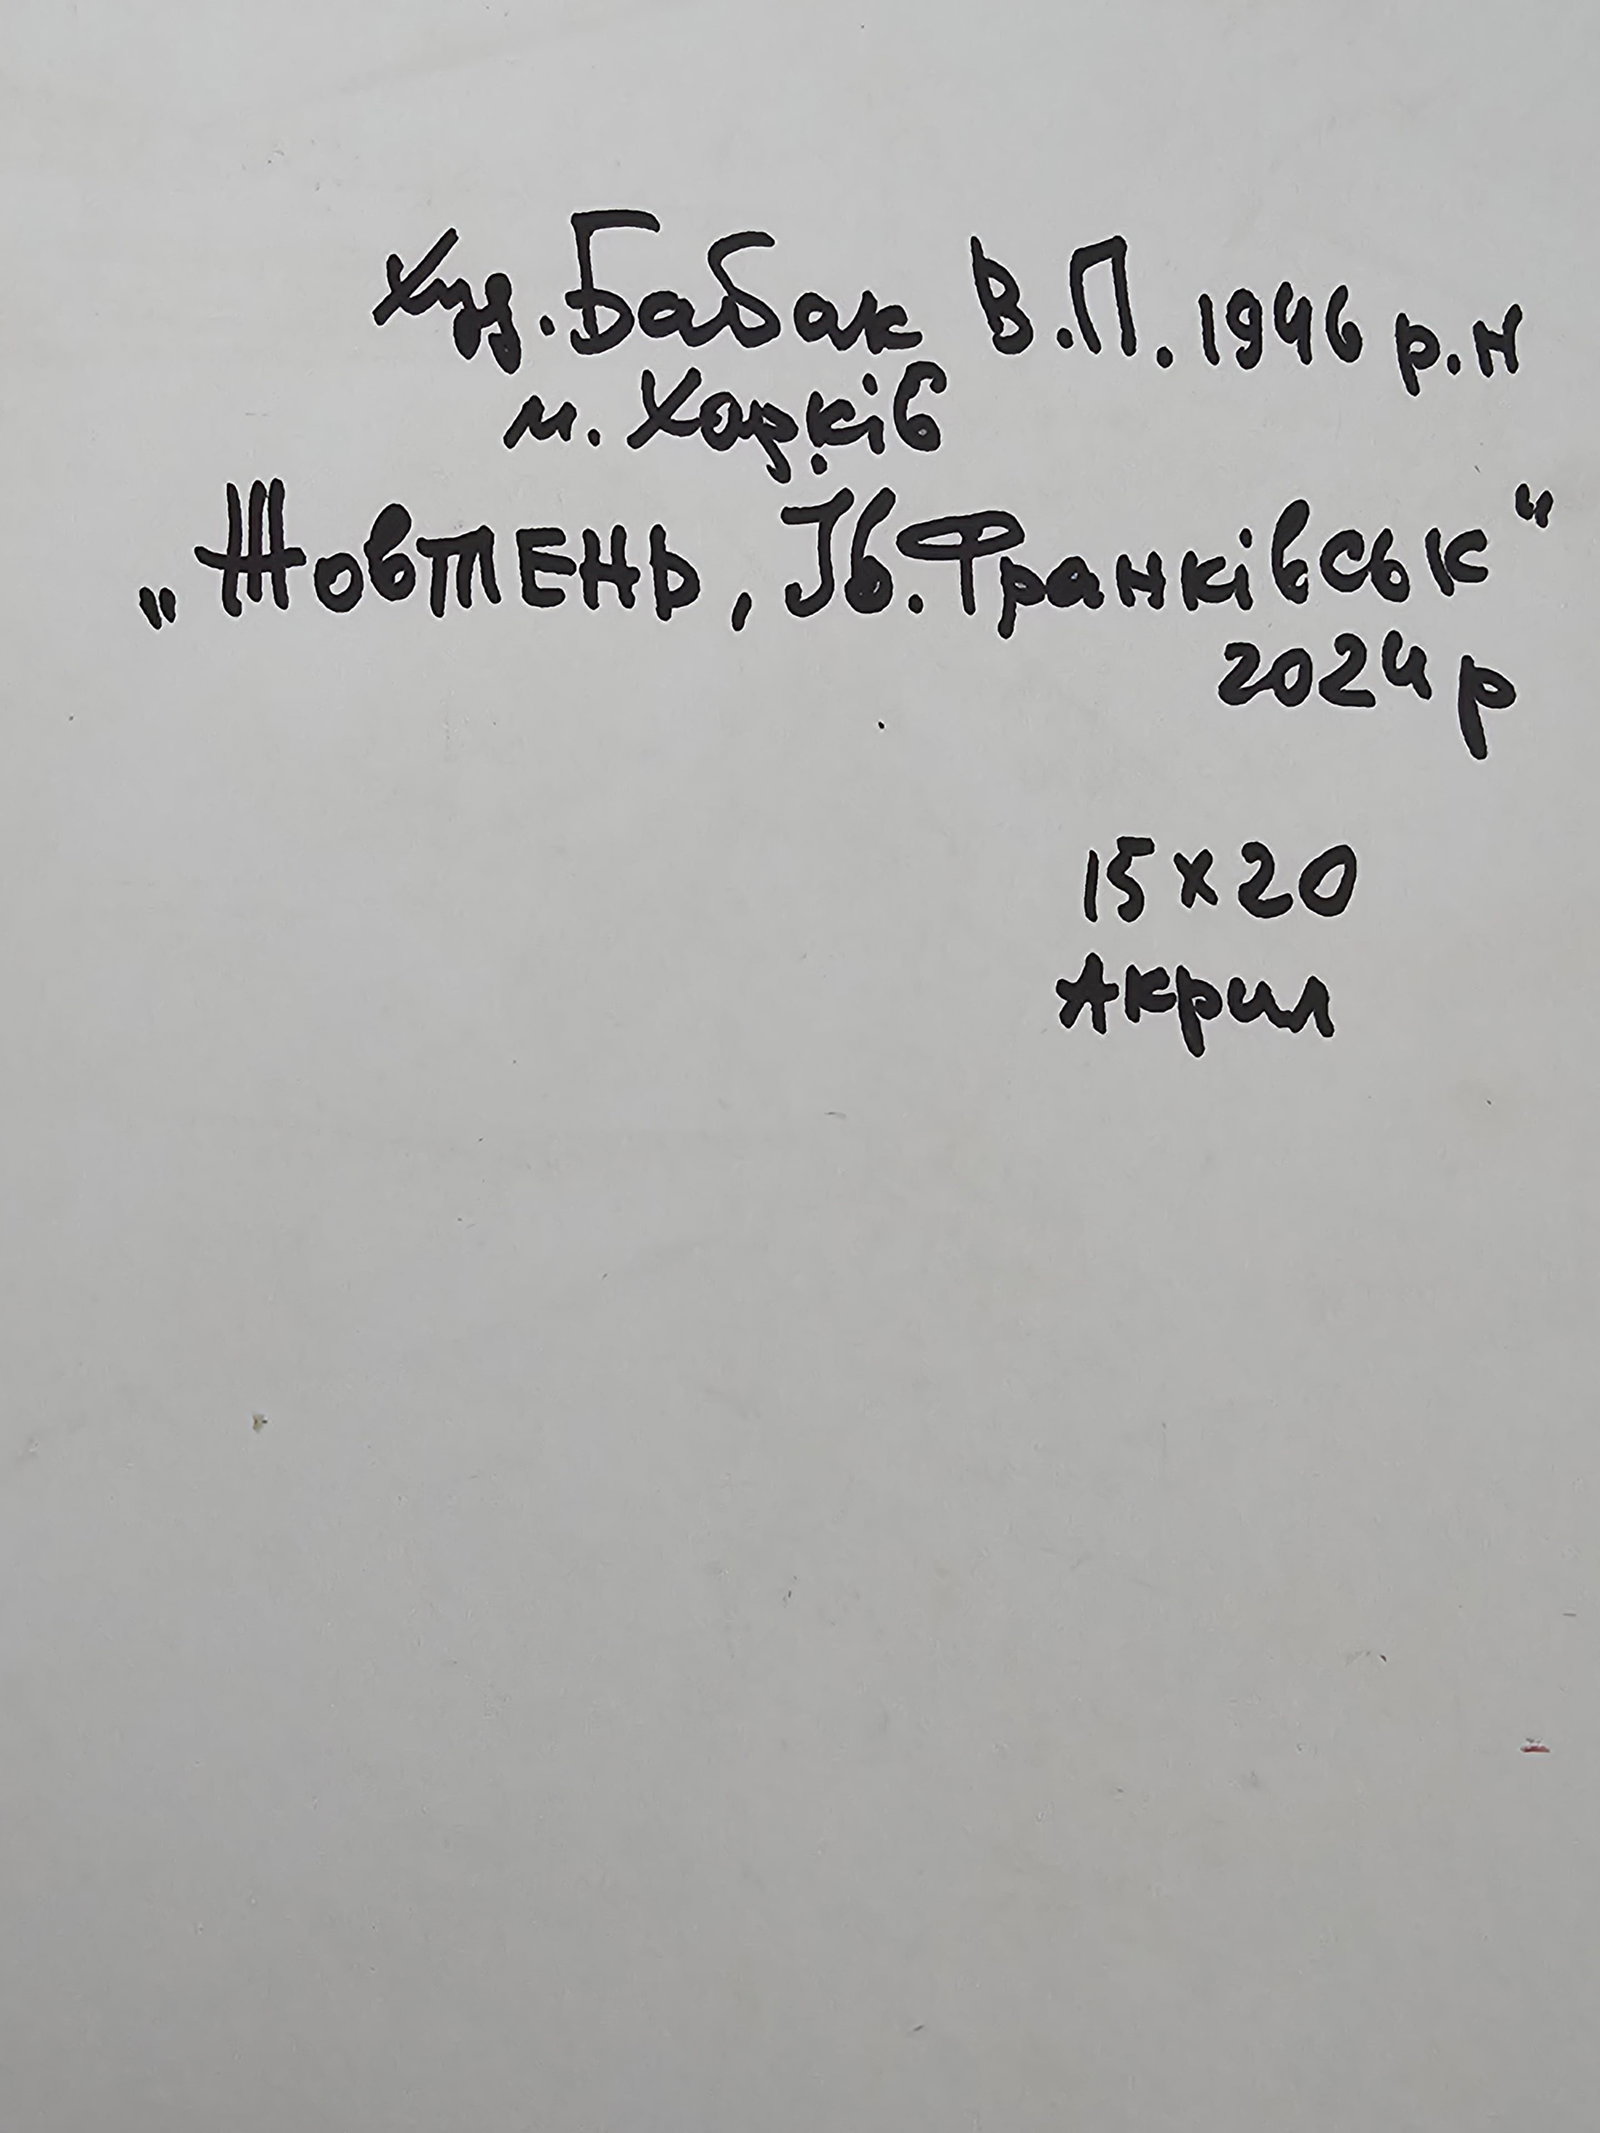 худ. Бабак В.П. 1946 р.н
м. Харків
„Жовтень, Ів. Франківськ“
2024 р
15х20
Акрил